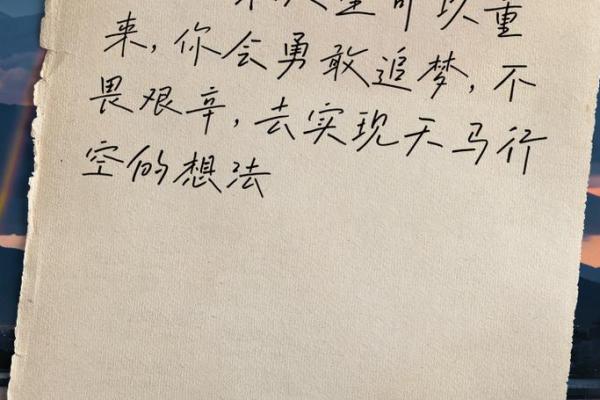 人生可以重
来,你会勇敢追梦,不
畏艰辛,去实现天马行
空的想法